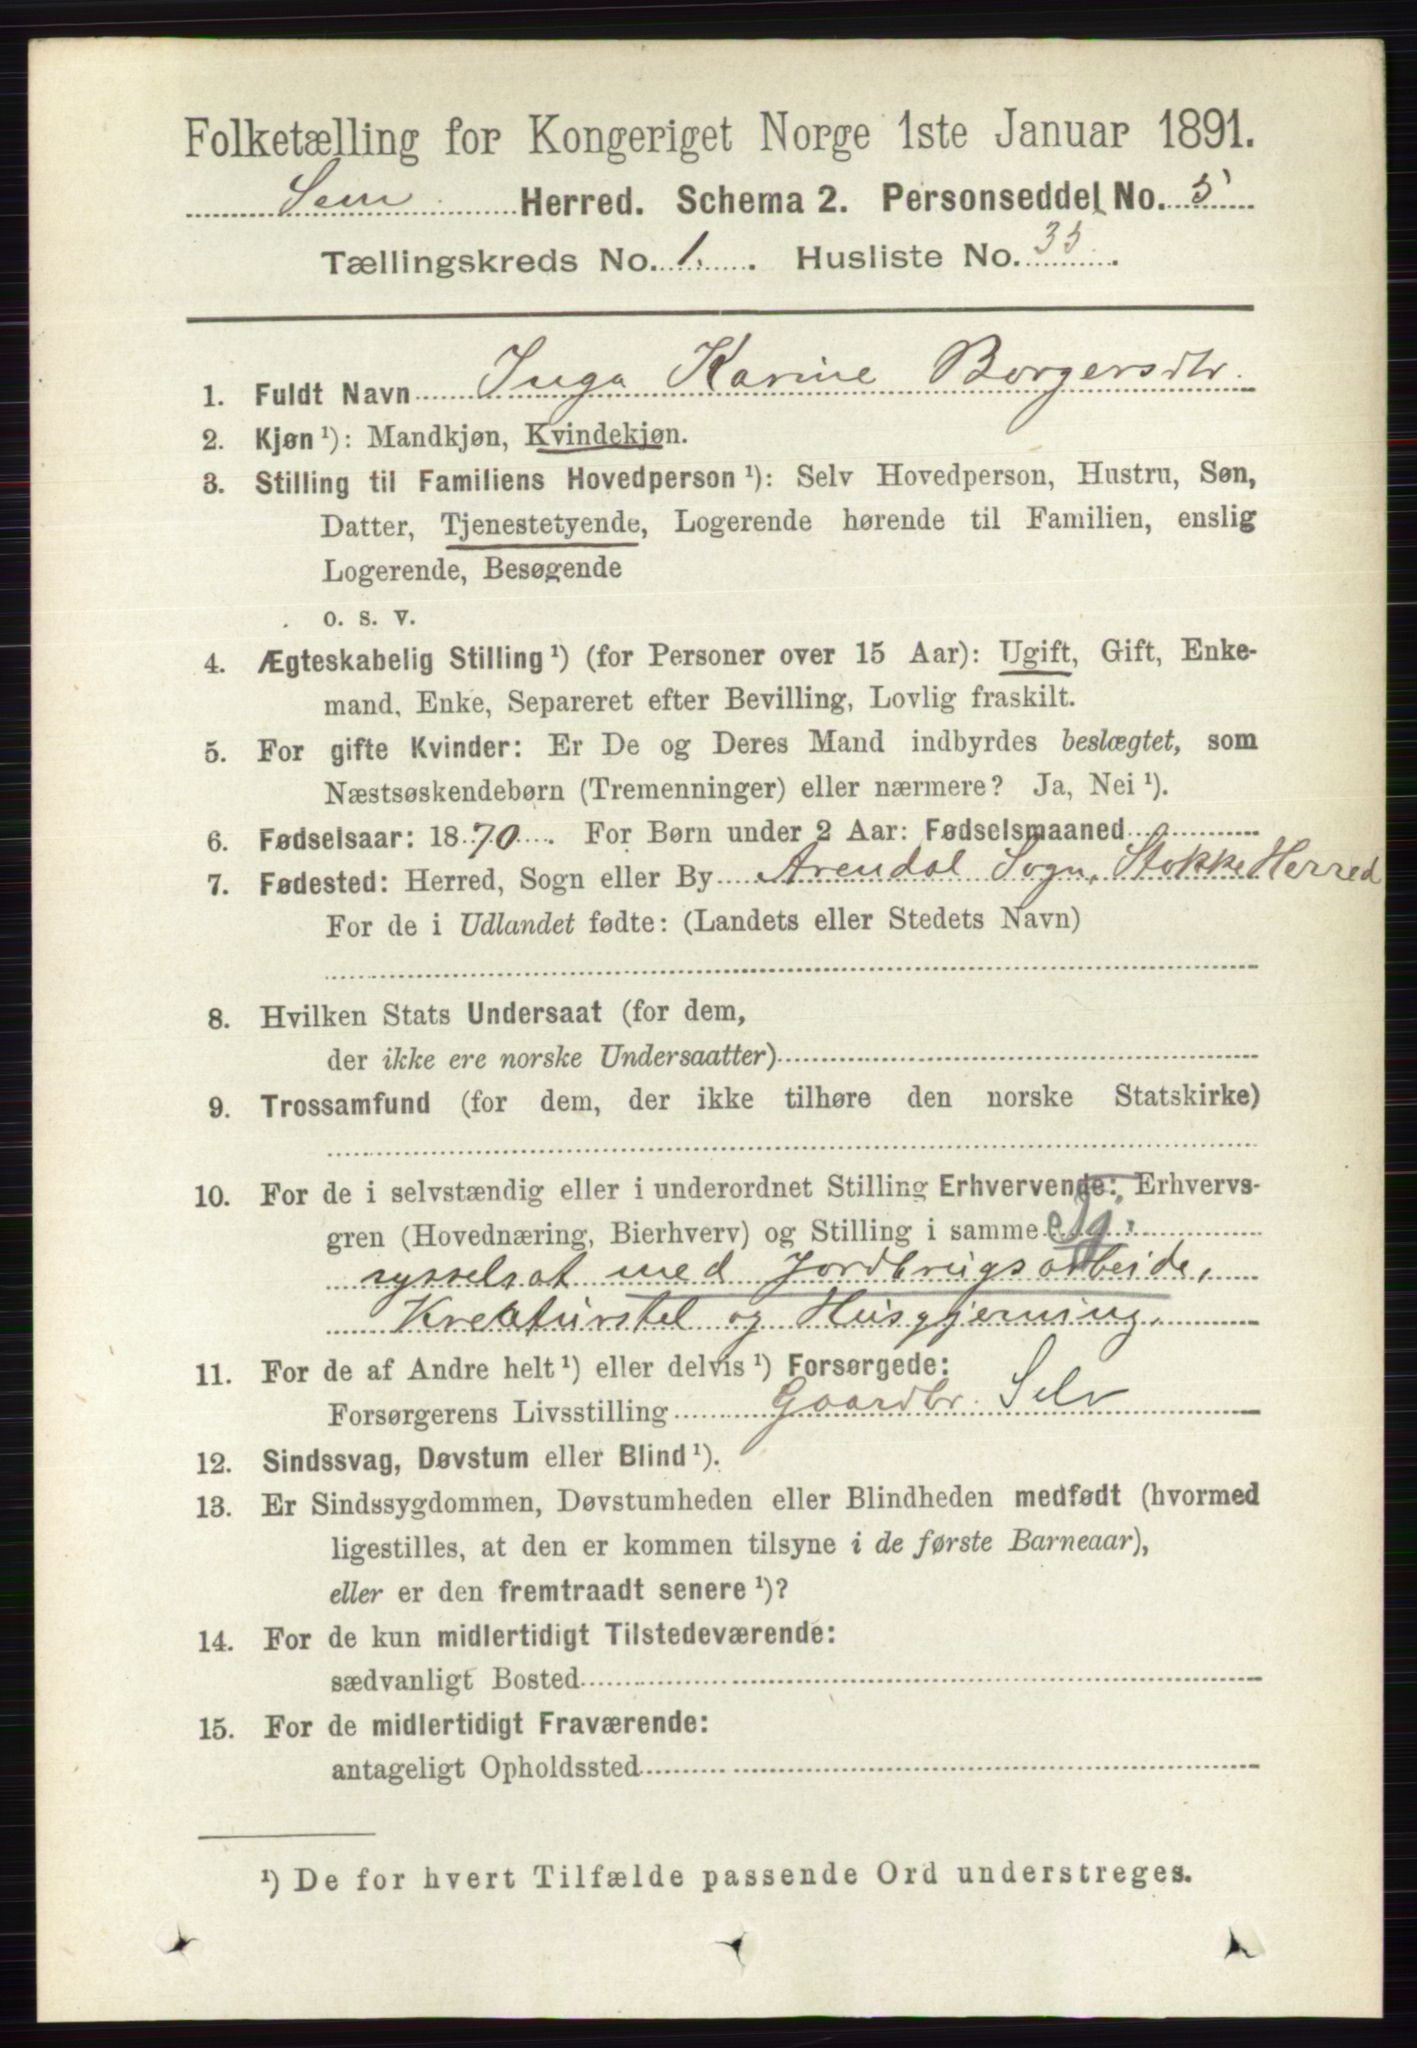 Folketælling for Kongeriget Norge 1ste Januar 1891.
Sem Herred. Schema 2. Personseddel No. 5
Tællingskreds No. 1. Husliste No. 35.
1. Fuldt Navn Inga Karine Borgersdtr.
2. Kjøn ¹): Mandkjøn, Kvindekjøn.
3. Stilling til Familiens Hovedperson ¹): Selv Hovedperson, Hustru, Søn,
Datter, Tjenestetyende, Logerende hørende til Familien, enslig
Logerende, Besøgende
o. s. v.
4. Ægteskabelig Stilling ¹) (for Personer over 15 Aar): Ugift, Gift, Enke-
mand, Enke, Separeret efter Bevilling, Lovlig fraskilt.
5. For gifte Kvinder: Er De og Deres Mand indbyrdes beslægtet, som
Næstsøskendebørn (Tremenninger) eller nærmere? Ja, Nei ¹).
6. Fødselsaar: 1870. For Børn under 2 Aar: Fødselsmaaned
7. Fødested: Herred, Sogn eller By Arendal Sogn, Stokke Herred
For de i Udlandet fødte: (Landets eller Stedets Navn)
8. Hvilken Stats Undersaat (for dem,
der ikke ere norske Undersaatter)
9. Trossamfund (for dem, der ikke tilhøre den norske Statskirke)
10. For de i selvstændig eller i underordnet Stilling Erhvervende: Erhvervs-
gren (Hovednæring, Bierhverv) og Stilling i samme
sysselsat med Jordbrugsarbeide,
Kreaturstel og Husgjerning.
11. For de af Andre helt ¹) eller delvis ¹) Forsørgede:
Forsørgerens Livsstilling Gaardbr. Selv
12. Sindssvag, Døvstum eller Blind ¹).
13. Er Sindssygdommen, Døvstumheden eller Blindheden medfødt (hvormed
ligestilles, at den er kommen tilsyne i de første Barneaar),
eller er den fremtraadt senere ¹)?
14. For de kun midlertidigt Tilstedeværende:
sædvanligt Bosted
15. For de midlertidigt Fraværende:
antageligt Opholdssted
¹) De for hvert Tilfælde passende Ord understreges.